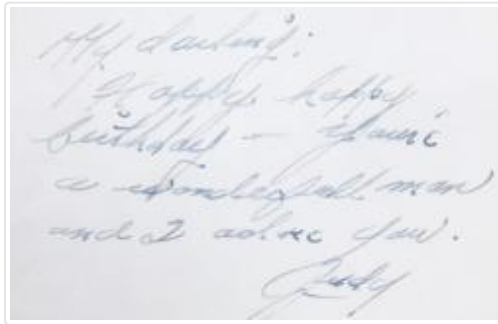 My darling:
Happy, happy
birthday - you're
a wonderful man
and I adore you.
Judy